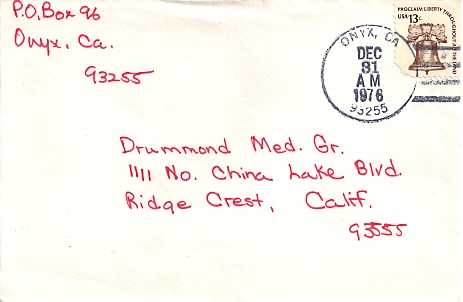 P.O. Box 96
Onyx, Ca.
93255
PROCLAIM LIBERTY THROUGHOUT ALL THE LAND
USA 13c
ONYX, CA
DEC
31
AM
1976
93255
Drummond Med. Gr.
1111 No. China Lake Blvd.
Ridge Crest, Calif.
93555